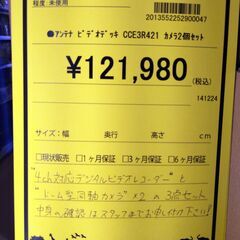 程度 未使用
2013552252900047
●アンテナ ビデオデッキ CCE3R421 カメラ2個セット
¥121,980(税込)
141224
サイズ：幅 奥行 高さ cm
□現状販売 □1ヶ月保証 □3ヶ月保証 □6ヶ月保証
"4ch対応デジタルビデオレコーダー"と
"ドーム型同軸カメラ"×2の3点セット
中身の確認はスタッフまでお申し付け下さい!